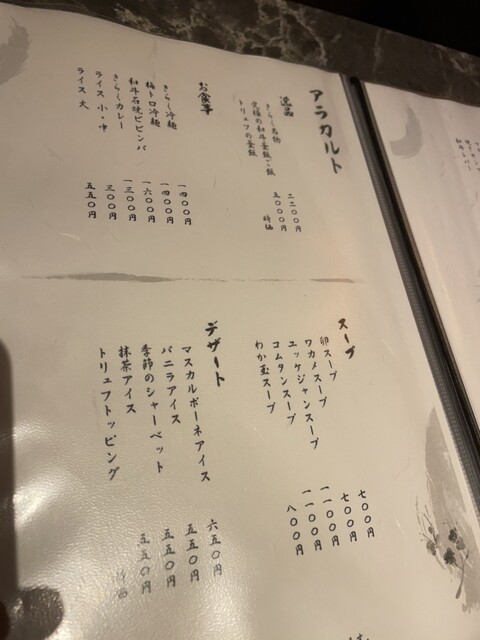 アラカルト
逸品
きらく名物 二二〇〇円
究極の和牛釜飯ご飯 五〇〇〇円
トリュフの釜飯 時価
お食事
きらく冷麺 一四〇〇円
梅トロ冷麺 一四〇〇円
和牛石焼ビビンバ 一六〇〇円
きらくカレー 一三〇〇円
ライス小・中 三〇〇円
ライス大 五五〇円
スープ
卵スープ 七〇〇円
ワカメスープ 七〇〇円
ユッケジャンスープ 一一〇〇円
コムタンスープ 一一〇〇円
わか玉スープ 八〇〇円
デザート
マスカルポーネアイス 六五〇円
バニラアイス 五五〇円
季節のシャーベット 五五〇円
抹茶アイス 五五〇円
トリュフトッピング